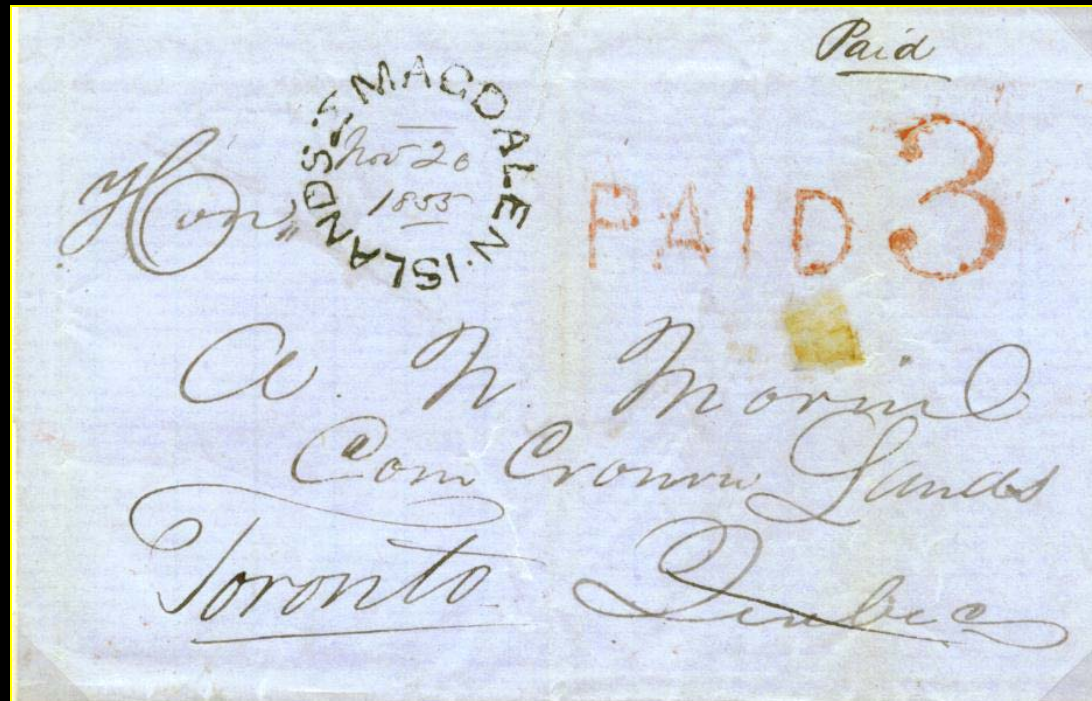 Paid
MAGDALEN·ISLANDS
Nov 20
1855
PAID 3
Hon
A. N. Morin
Com Crown Lands
Toronto Quebec